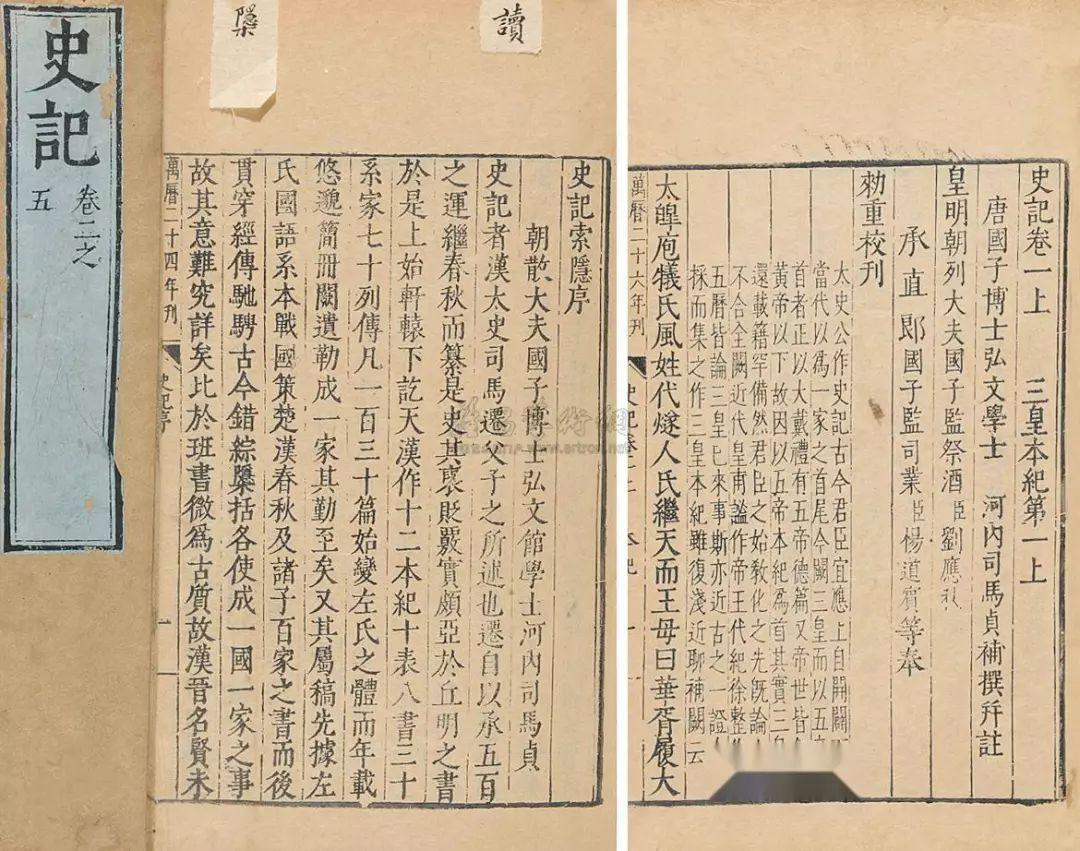 史記
卷二之
五
讀
史記索隱序
朝散大夫國子博士弘文館學士河內司馬貞
史記者漢太史司馬遷父子之所述也遷自以承五百
之運繼春秋而纂是史其襃貶覈實頗亞於丘明之書
於是上始軒轅下訖天漢作十二本紀十表八書三十
系家七十列傳凡一百三十篇始變左氏之體而年載
悠邈簡冊闕遺勒成一家其勤至矣又其屬稿先據左
氏國語系本戰國策楚漢春秋及諸子百家之書而後
貫穿經傳馳騁古今錯綜檃括各使成一國一家之事
故其意難究詳矣比於班書微爲古質故漢晉名賢未
萬曆二十四年刊 史記序 一
史記卷一上 三皇本紀第一上
唐國子博士弘文學士 河內司馬貞補撰幷註
皇明朝列大夫國子監祭酒臣劉應秋
承直郎國子監司業臣楊道賓等奉
勑重校刊
太史公作史記古今君臣宜應上自開闢
當代以爲一家之首尾今闕三皇而以五
首者正以大戴禮有五帝德篇又帝世皆
黃帝以下故因以五帝本紀爲首其實三
還載籍罕備然君臣之始敎化之先旣論
不合全闕近代皇甫謐作帝王代紀徐整
五曆皆論三皇已來事斯亦近古之一證
採而集之作三皇本紀雖復淺近聊補闕云
太皥庖犧氏風姓代燧人氏繼天而王母曰華胥履大
萬曆二十六年刊 史記卷一上 本紀 一